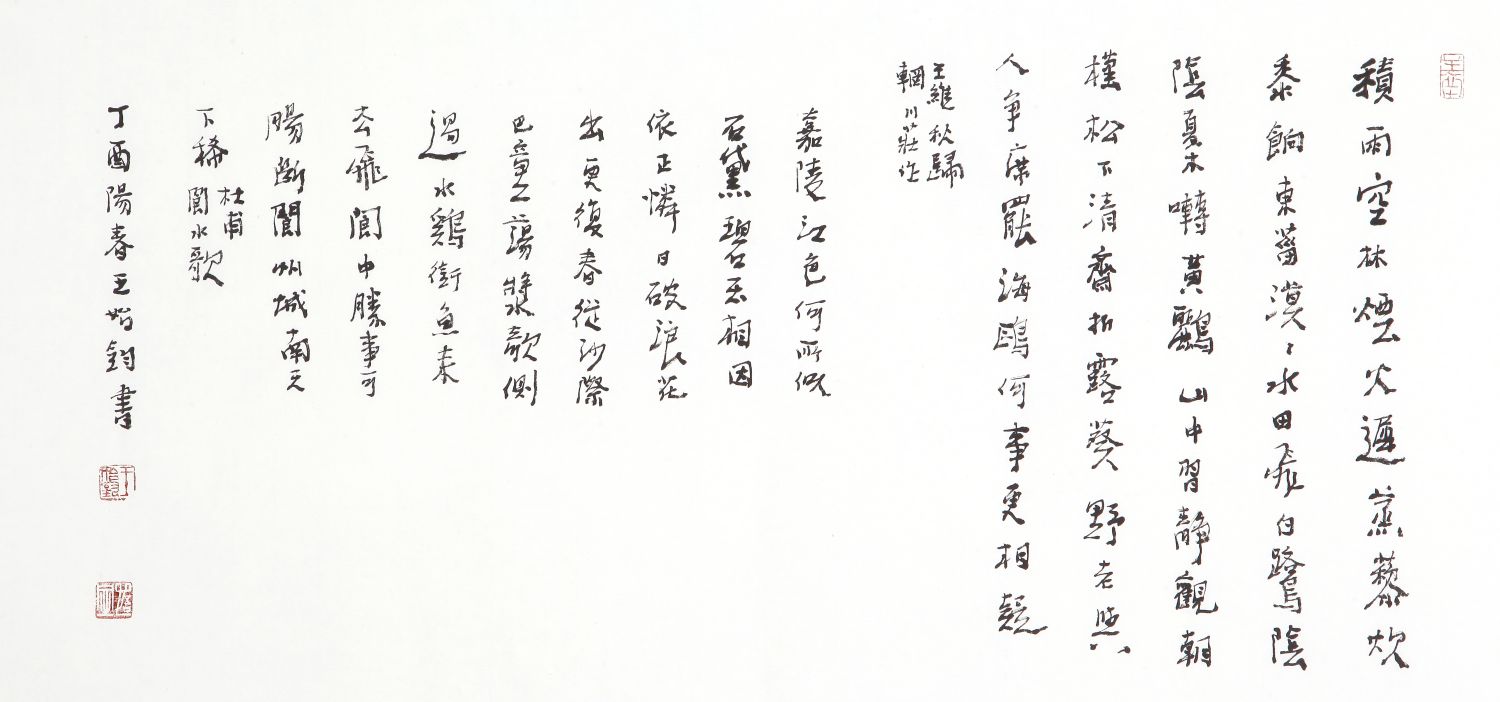 積雨空林煙火遲蒸藜炊
黍餉東菑漠〻水田飛白鷺陰
陰夏木囀黃鸝山中習靜觀朝
槿松下清齋折露葵野老與
人爭席罷海鷗何事更相疑
王維秋歸
輞川莊作
嘉陵江色何所似
石黛碧玉相因
依正憐日破浪花
出更復春從沙際
巴童蕩槳欹側
過水鷄銜魚來
去飛閬中勝事可
腸斷閬州城南天
下稀
杜甫
閬水歌
丁酉陽春王始鈞書